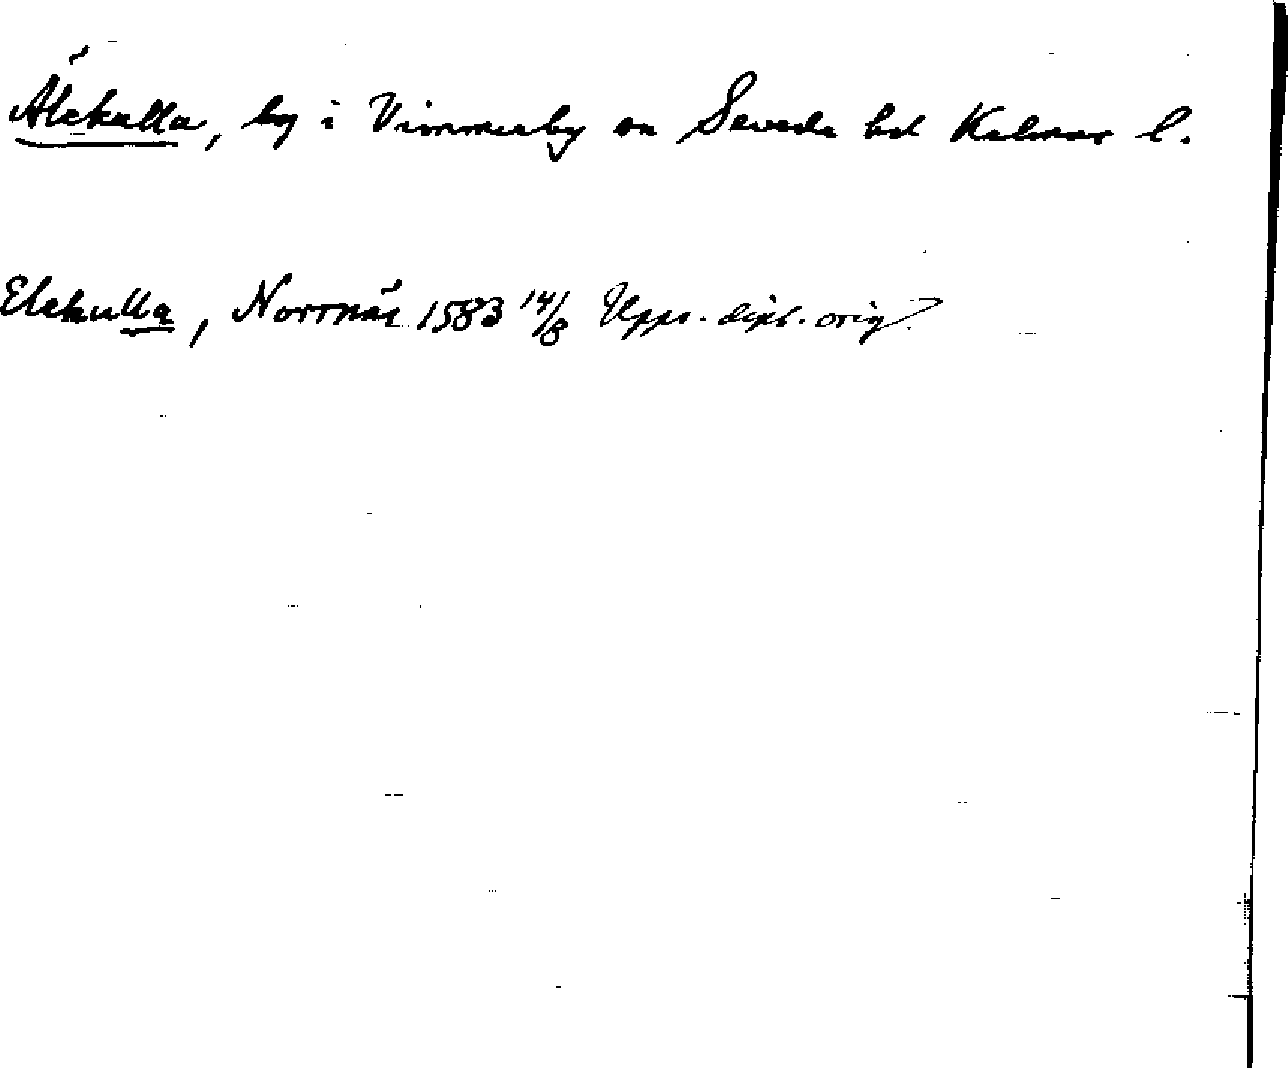 Älekulla, by i Vimmerby sn Sevede hd Kalmar l.
Elekulla, Norrnäs 1583 14/8 Upps. dipl. orig.